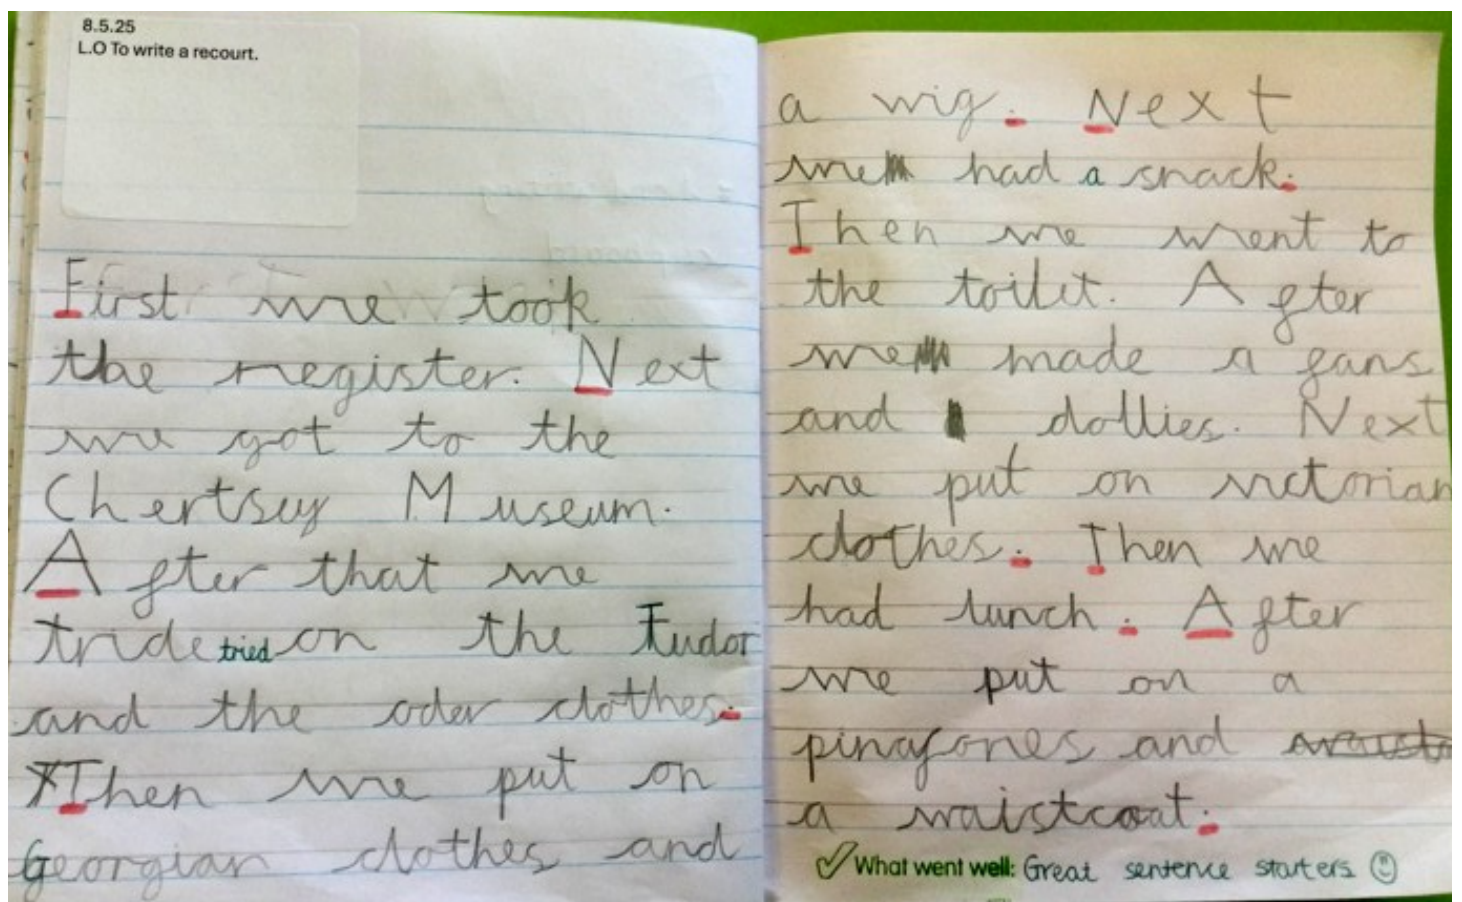 8.5.25
L.O To write a recourt.
First we took
the register. Next
we got to the
Chertsey Museum.
After that we
tride tried on the Tudor
and the oder clothes.
Then we put on
Georgian clothes and
a wig. Next
we had a snack.
Then we went to
the toilet. After
we made a fans
and dollies. Next
we put on victorian
clothes. Then we
had lunch. After
we put on a
pinafores and
a waistcoat.
What went well: Great sentence starters